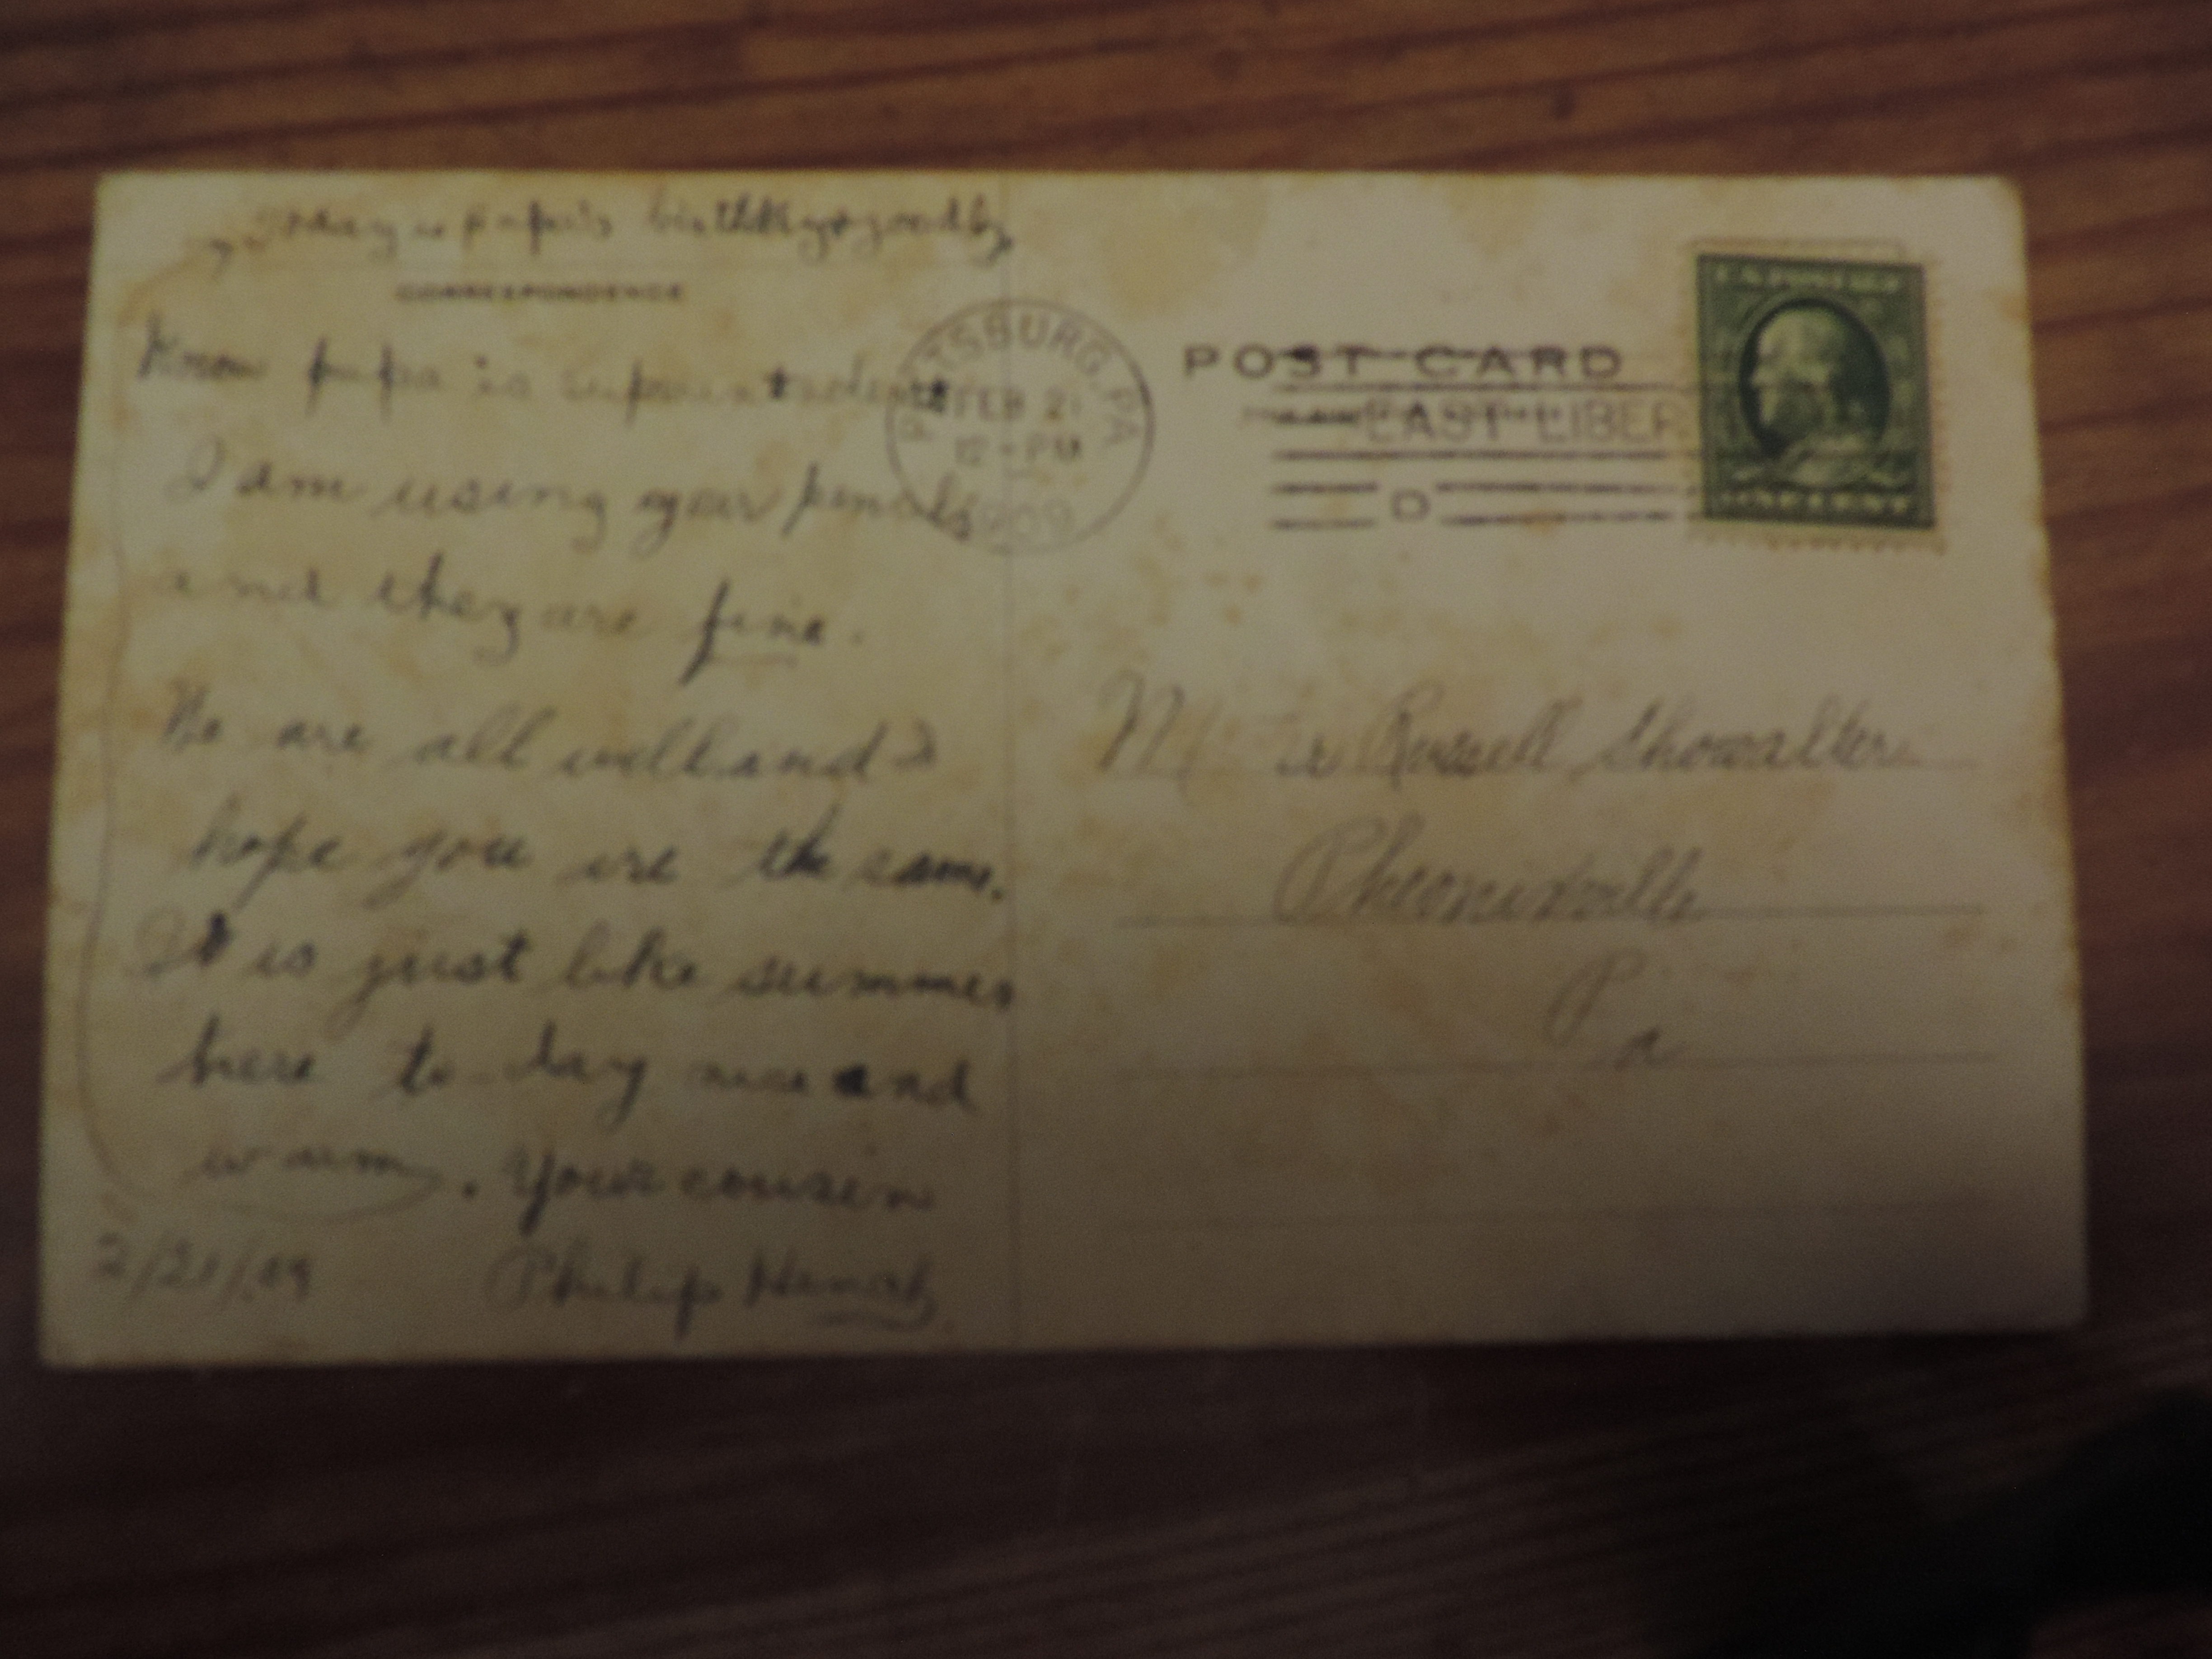 to day is papa's birthday goodby
CORRESPONDENCE
Know papa is superintendent
I am using your pencils
and they are fine.
We are all well and I
hope you are the same.
It is just like summer
here to-day nice and
warm. Your cousin
2/21/09 Philip
PITTSBURG, PA
FEB 21
12-PM
1909
POST CARD
EAST LIBER
D
U.S. POSTAGE
ONE CENT
Russell Showalter
Pheonixville
Pa